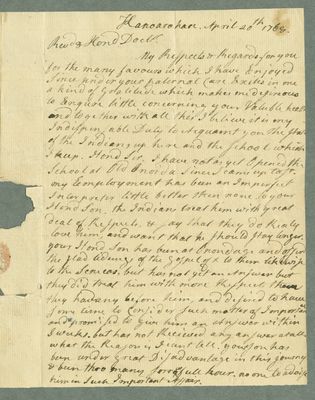 Kanoarohare April 20th 1768
Revd & Hond Doctr
My Respects & Regards for you
for the many favours which I have Enjoyed
Since under your paternal Care Excites in me
a kind of Gratitude which makes me desirous
to Enquire little concerning your Valuble health
and together with all this I believe it is my
Indispensable Duty to Acquaint you the State
of the Indians up here and the School which
I keep. Hond Sir, I have not as yet Opened the
School at Old Onoida Since I came up last.
my Employment has been an Imperfect
Interpreter little better then none to your
Hond Son. the Indians treat him with great
deal of Respects, & Say that they do Realy
love him, and want that he should stay longer
your Hond Son has been at Onondaga and offer
the glad tidings of the Gospel of to them likewise
to the Senecas. but has not yet an Answer but
they did treat him with more Respect than
they have any before him, and desired to have
some time to Consider Such matters of Importance
and promised to give him an Answer within
weeks. but has not Received any answer at all
what the Reason is I cant tell. your Son has
been under great Disadvantage in this journey
& been thro many sorrowfull hour. no one to advise
him in Such Important Affair.